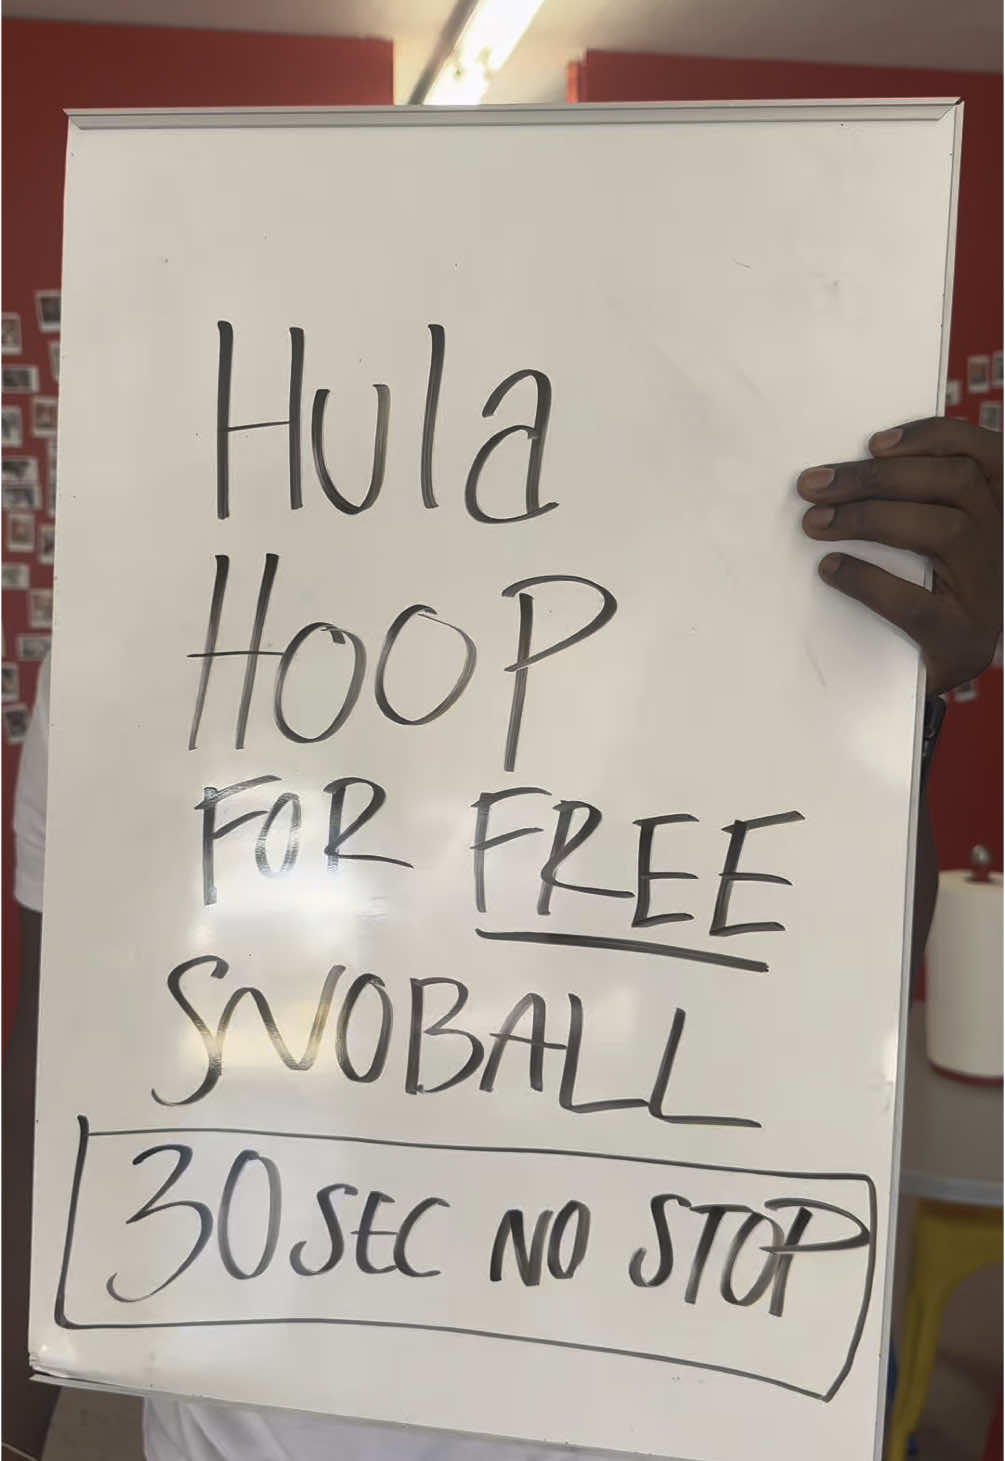 Hula
HOOP
FOR FREE
SNOBALL
30 SEC NO STOP